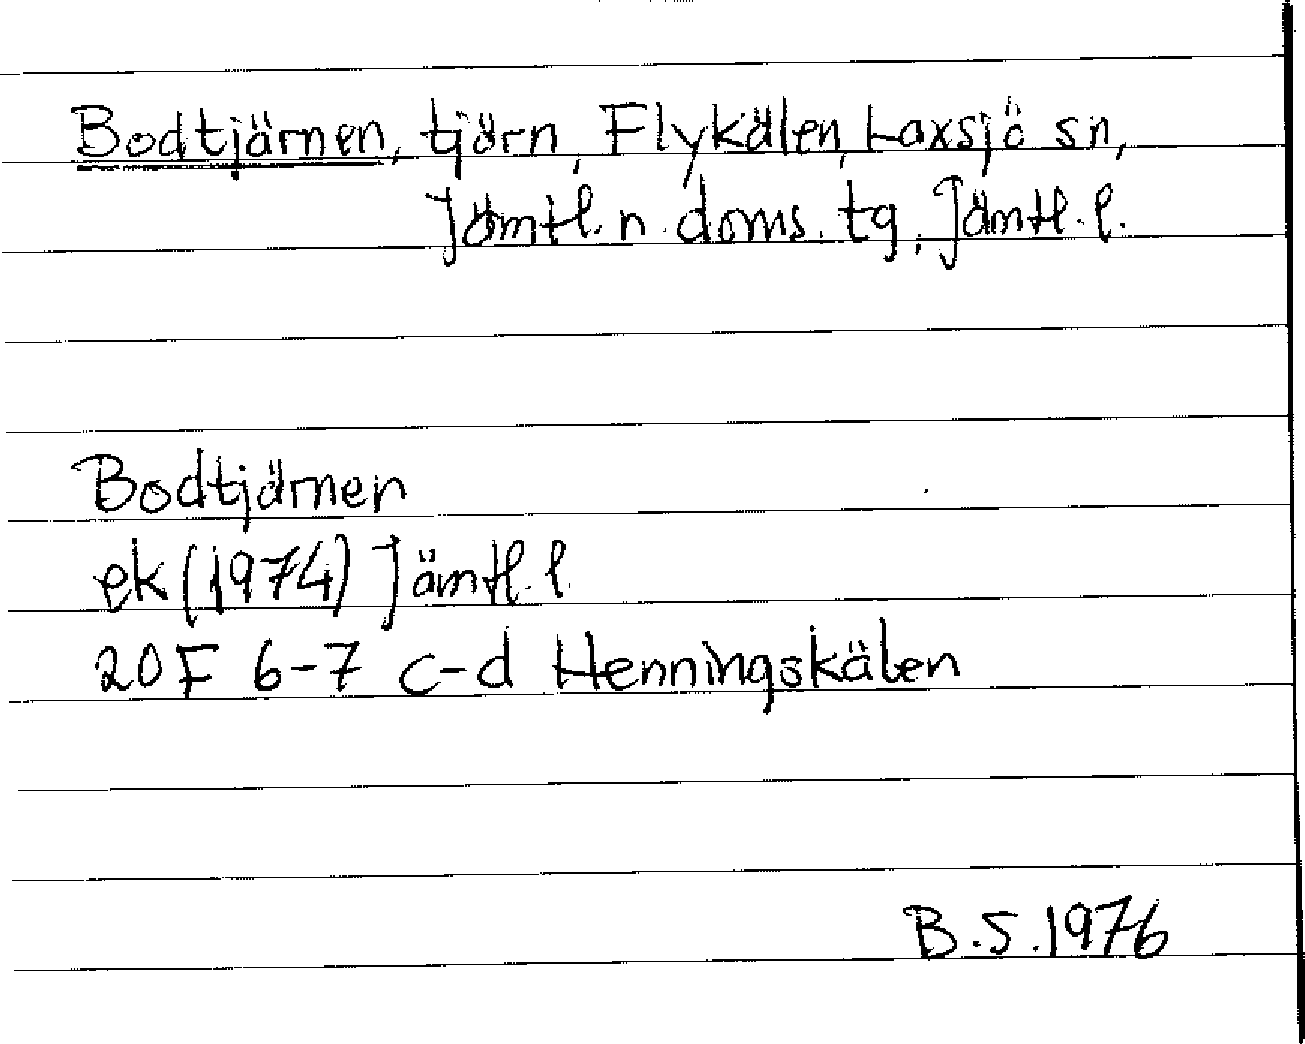 Bodtjärnen, tjärn, Flykälen, Laxsjö sn,
Jämtl. n. doms. tg, Jämtl. l.
Bodtjärnen
ek (1974) Jämtl. l.
20F 6-7 c-d Henningskälen
B.S. 1976